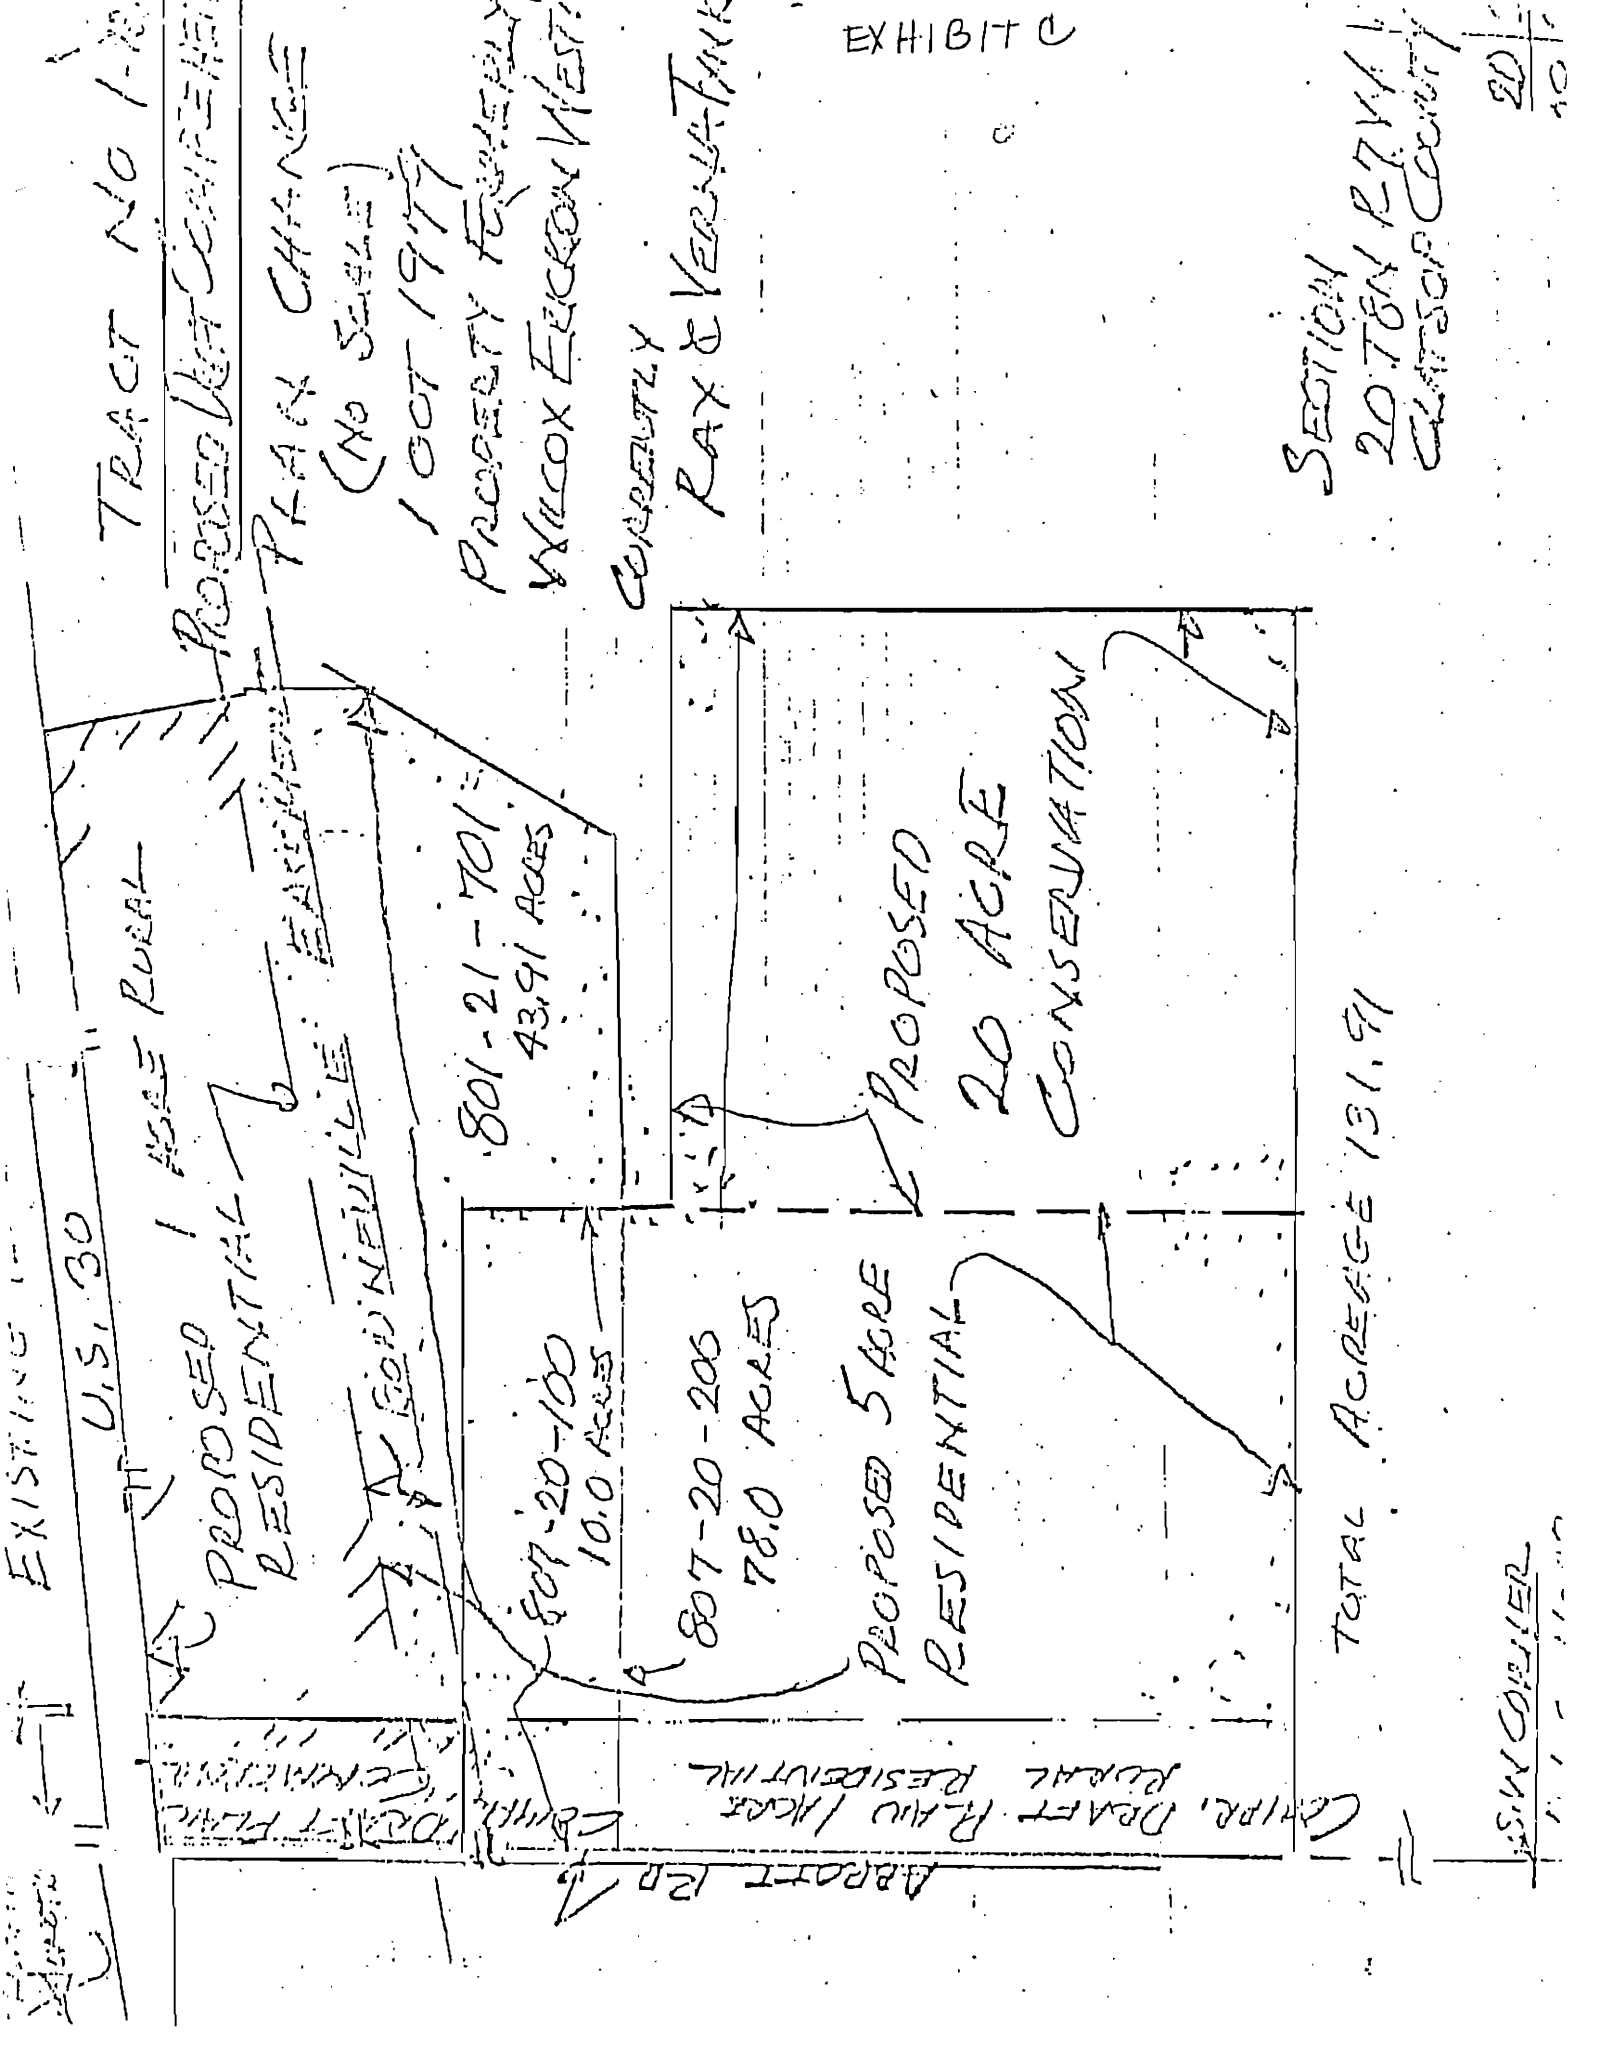 EXHIBIT C
TRACT NO 1
PROPOSED
PLAN CHANGE
(NO SCALE)
1 OCT 1979
PROPERTY FORMERLY
WILCOX ERICKSON WEST
CURRENTLY
RAY & VERNA
SECTION
20 T8N R7W
CLATSOP COUNTY
20
EXISTING
U.S. 30
PROPOSED 1 ACRE RURAL
RESIDENTIAL
BONNEVILLE EASEMENT
801-21-701
43.91 ACRES
807-20-100
10.0 ACRES
807-20-200
78.0 ACRES
PROPOSED 5 ACRE
RESIDENTIAL
PROPOSED
20 ACRE
CONSERVATION
TOTAL ACREAGE 131.91
DRAFT PLAN
COMMERCIAL
COMPR. DRAFT PLAN 1 ACRE
RURAL RESIDENTIAL
ABBOTT RD
SW CORNER